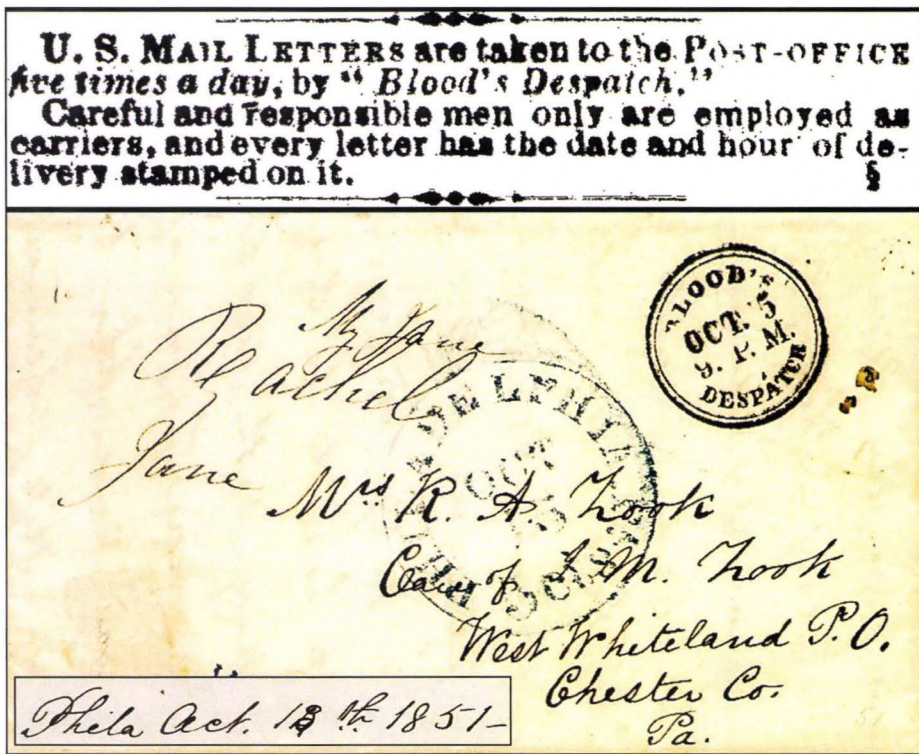 U. S. MAIL LETTERS are taken to the POST-OFFICE
five times a day, by "Blood's Despatch."
Careful and responsible men only are employed as
carriers, and every letter has the date and hour of de-
livery stamped on it. §
BLOOD'S
OCT. 5
9. P. M.
DESPATCH
My Jane
Rachel
Jane
PHILADELPHIA
OCT
5 cts
Mrs R. A. Zook
Care of J M. Zook
West Whiteland P.O.
Chester Co.
Pa.
Phila Oct. 13th 1851-
51